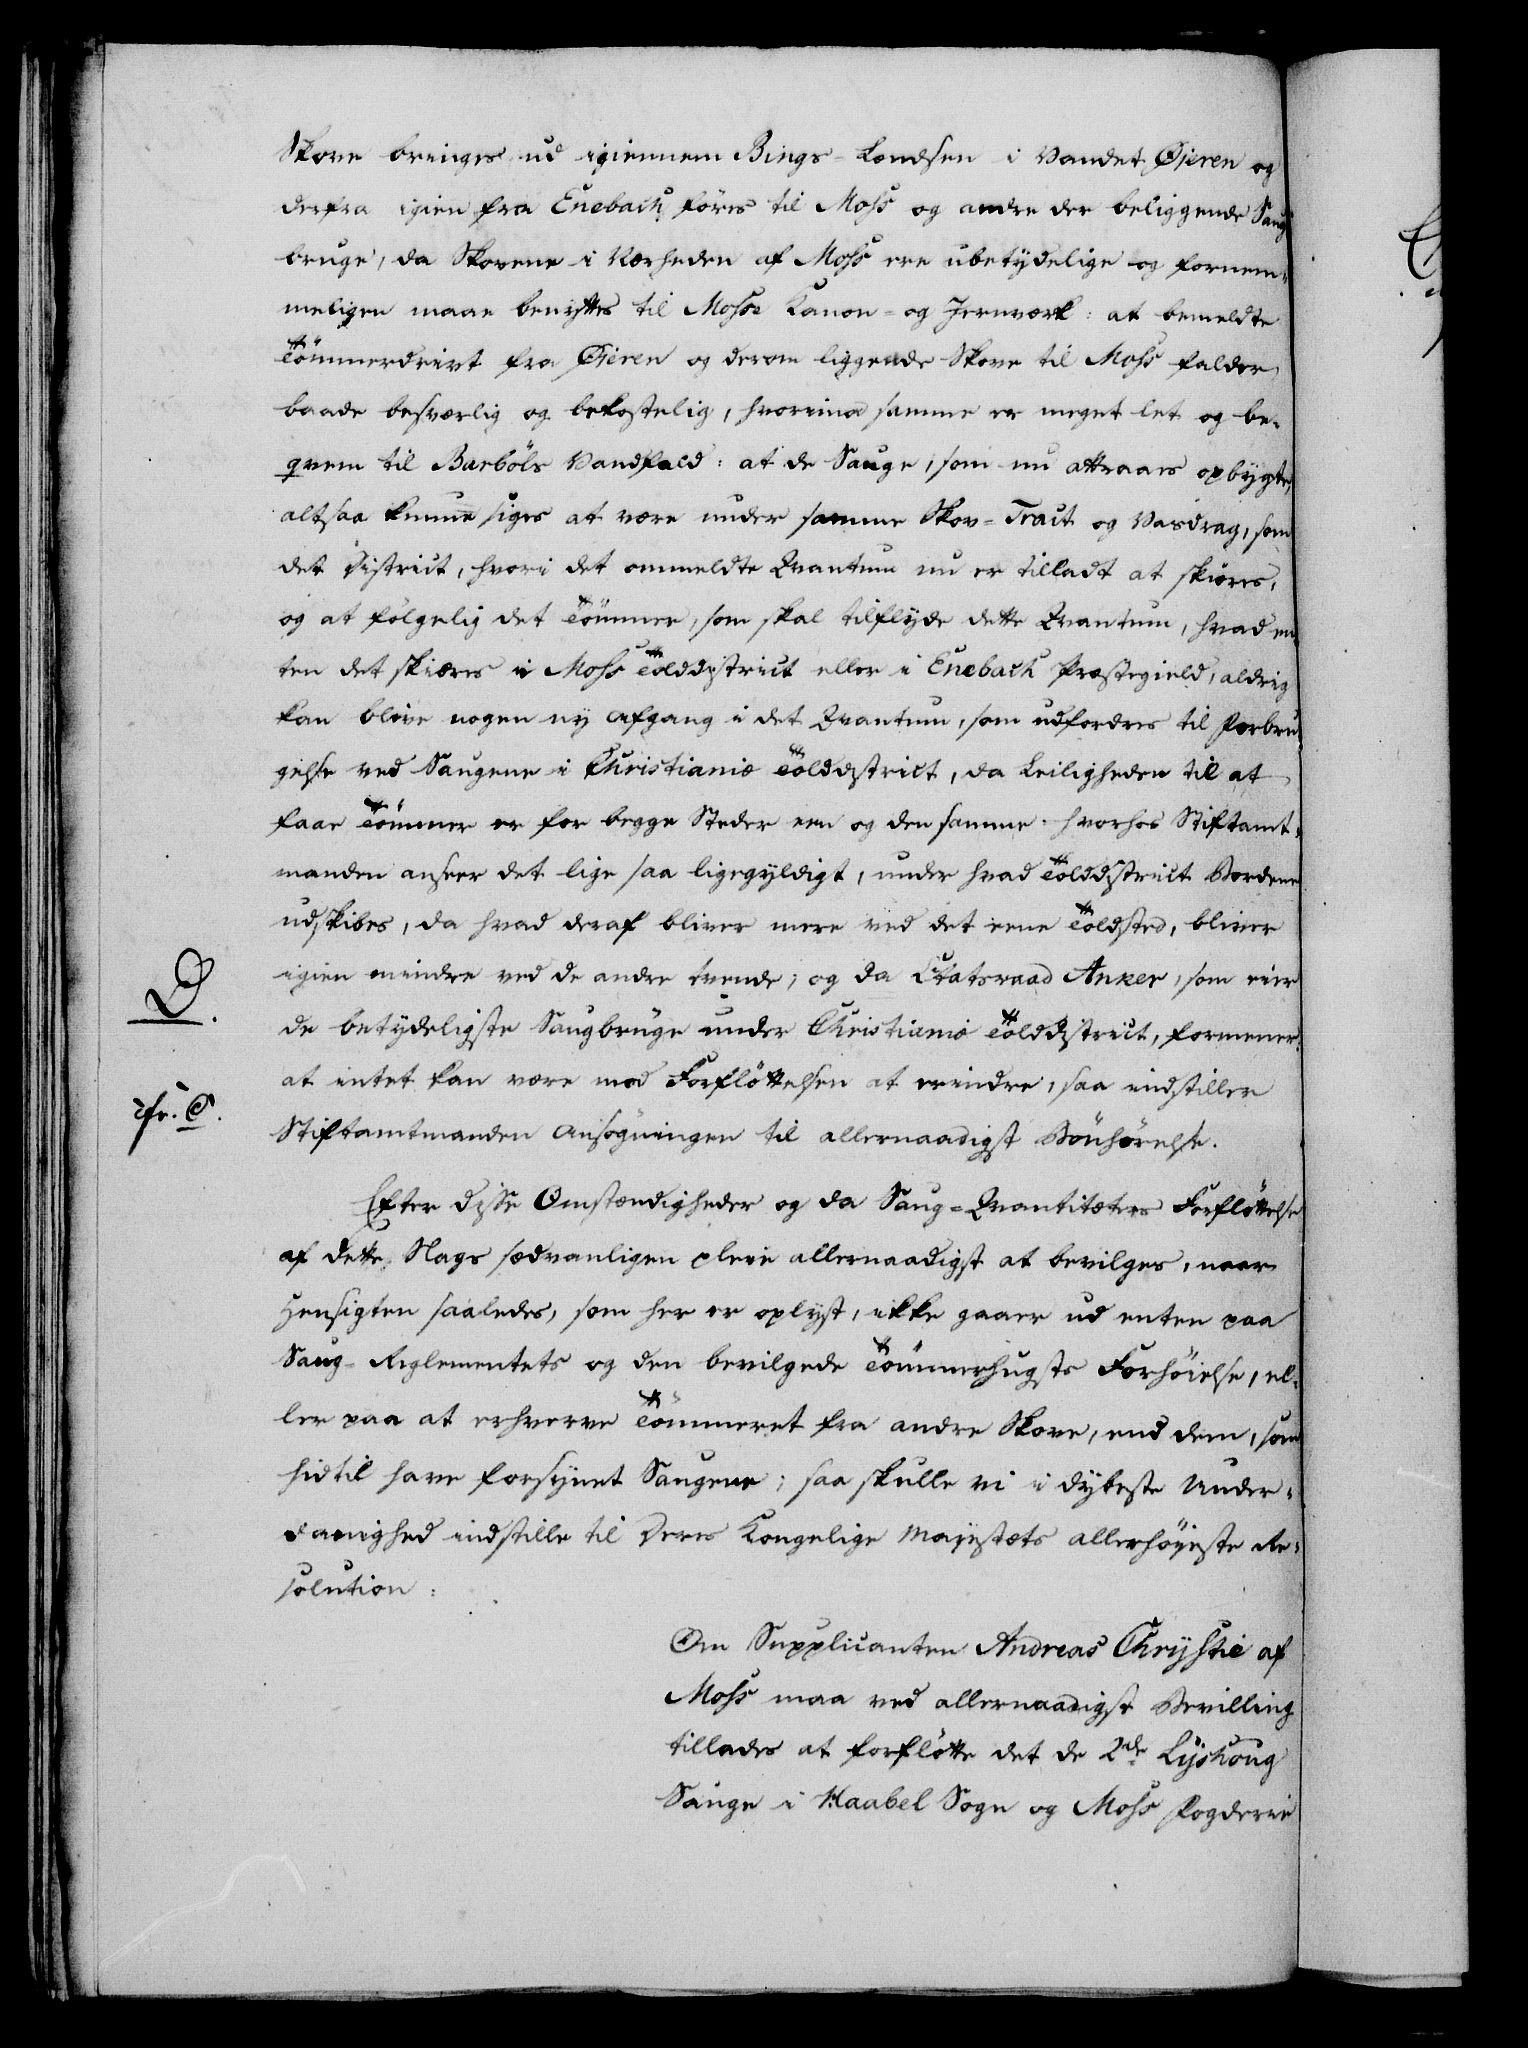 Skove bringes ud igiennem Bings-Londsen i Vandet Øjeren og
derfra igien fra Enebach föres til Moss og andre der beliggende Saug-
bruge, da Skovene i Nærheden af Moss ere ubetydelige og fornem-
meligen maae benyttes til Mosse Kanon- og Jernværk: at bemeldte
Tömmerdrivt fra Øieren og derom liggende Skove til Moss falder
baade besværlig og bekostelig, hvorimod samme er meget let og be-
qvem til Barböls Vandfald: at de Sauge, som nu attraaes opbygte,
altsaa kunne siges at være under samme Skov-Tract og Vasdrag, som
det District, hvori det ommeldte Qvantum nu er tilladt at skiæres,
og at fölgelig det Tömmer, som skal tilflyde dette Qvantum, hvad en-
ten det skiæres i Moss Tolddistrict eller i Enebach Præstegield, aldrig
kan blive nogen ny Afgang i det Qvantum, som udfordres til Forbru-
gelse ved Saugene i Christianiæ Tolddistrict, da Leiligheden til at
faae Tömmer er for begge Steder een og den samme. hvorhos Stiftamt-
manden anseer det lige saa ligegyldigt, under hvad Tolddistrict Bordene
udskibes, da hvad deraf bliver mere ved det eene Toldsted, bliver
igien mindre ved de andre tvende; og da Etatsraad Anker, som eier
de betydeligste Saugbruge under Christiania Tolddistrict, formener
at intet kan være mod Forflöttelsen at erindre, saa indstiller
Stiftamtmanden Ansögningen til allernaadigst Bönhörelse.
D.
cfr. C.
Efter disse Omstændigheder og da Saug-Qvantiteters Forflöttelse
af dette Slags sædvanligen pleie allernaadigst at bevilges, naar
Hensigten saaledes, som her er oplyst, ikke gaaer ud enten paa
Saug-Reglementets og den bevilgede Tömmerhugsts Forhöielse, el-
ler paa at erhverve Tömmeret fra andre Skove, end dem, som
hidtil have forsynet Saugene; saa skulle vi i dybeste Under-
danighed indstille til Deres Kongelige Majestæts allerhöyeste Re-
solution:
Om Supplicanten Andreas Chrystie af
Moss maa ved allernaadigst Bevilling
tillades at forflötte det de 2de Lyshoug
Sauge i Haabel Sogn og Moss Fogderie